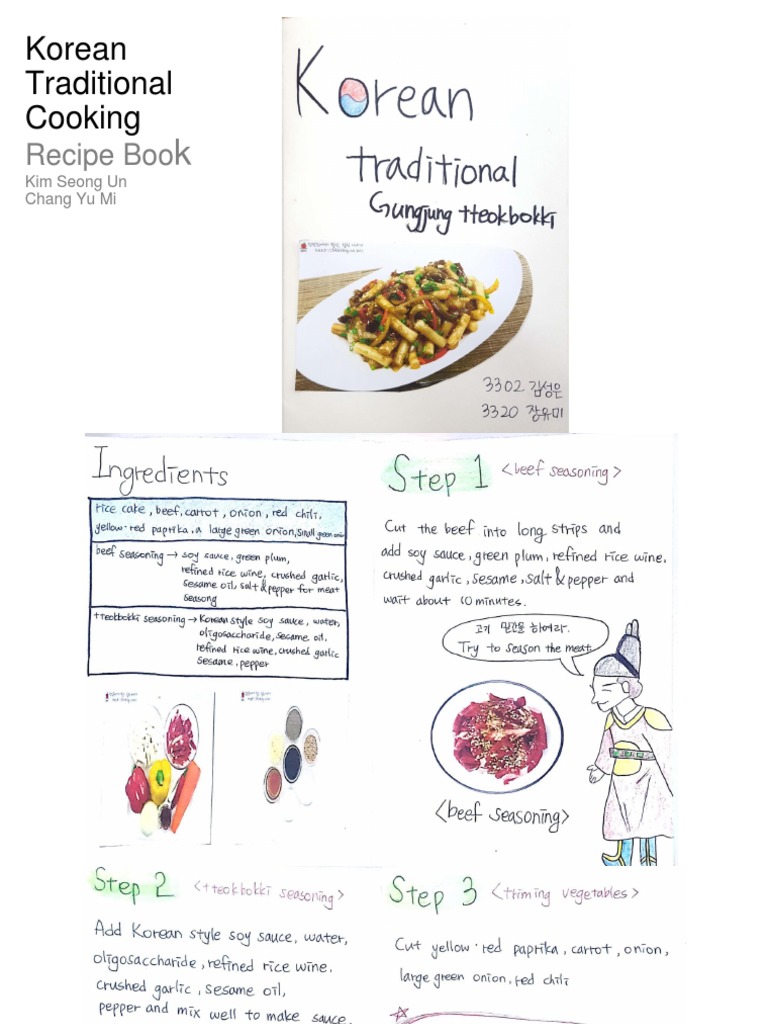 Korean
Traditional
Cooking
Recipe Book
Kim Seong Un
Chang Yu Mi
Korean
traditional
Gungjung tteokbokki
3302 김성은
3320 장유미
Ingredients
rice cake, beef, carrot, onion, red chili,
yellow·red paprika, a large green onion, small green onion
beef seasoning → soy sauce, green plum,
refined rice wine, crushed garlic,
sesame oil, salt & pepper for meat
seasong
tteokbokki seasoning → Korean style soy sauce, water,
oligosaccharide, sesame oil,
refined rice wine, crushed garlic
sesame, pepper
Step 1 <beef seasoning>
Cut the beef into long strips and
add soy sauce, green plum, refined rice wine,
crushed garlic, sesame, salt & pepper and
wait about 10 minutes.
고기 밑간을 하여라.
Try to season the meat
<beef seasoning>
Step 2 <tteokbokki seasoning>
Add Korean style soy sauce, water,
oligosaccharide, refined rice wine,
crushed garlic, sesame oil,
pepper and mix well to make sauce.
Step 3 <triming vegetables>
Cut yellow·red paprika, carrot, onion,
large green onion, red chili